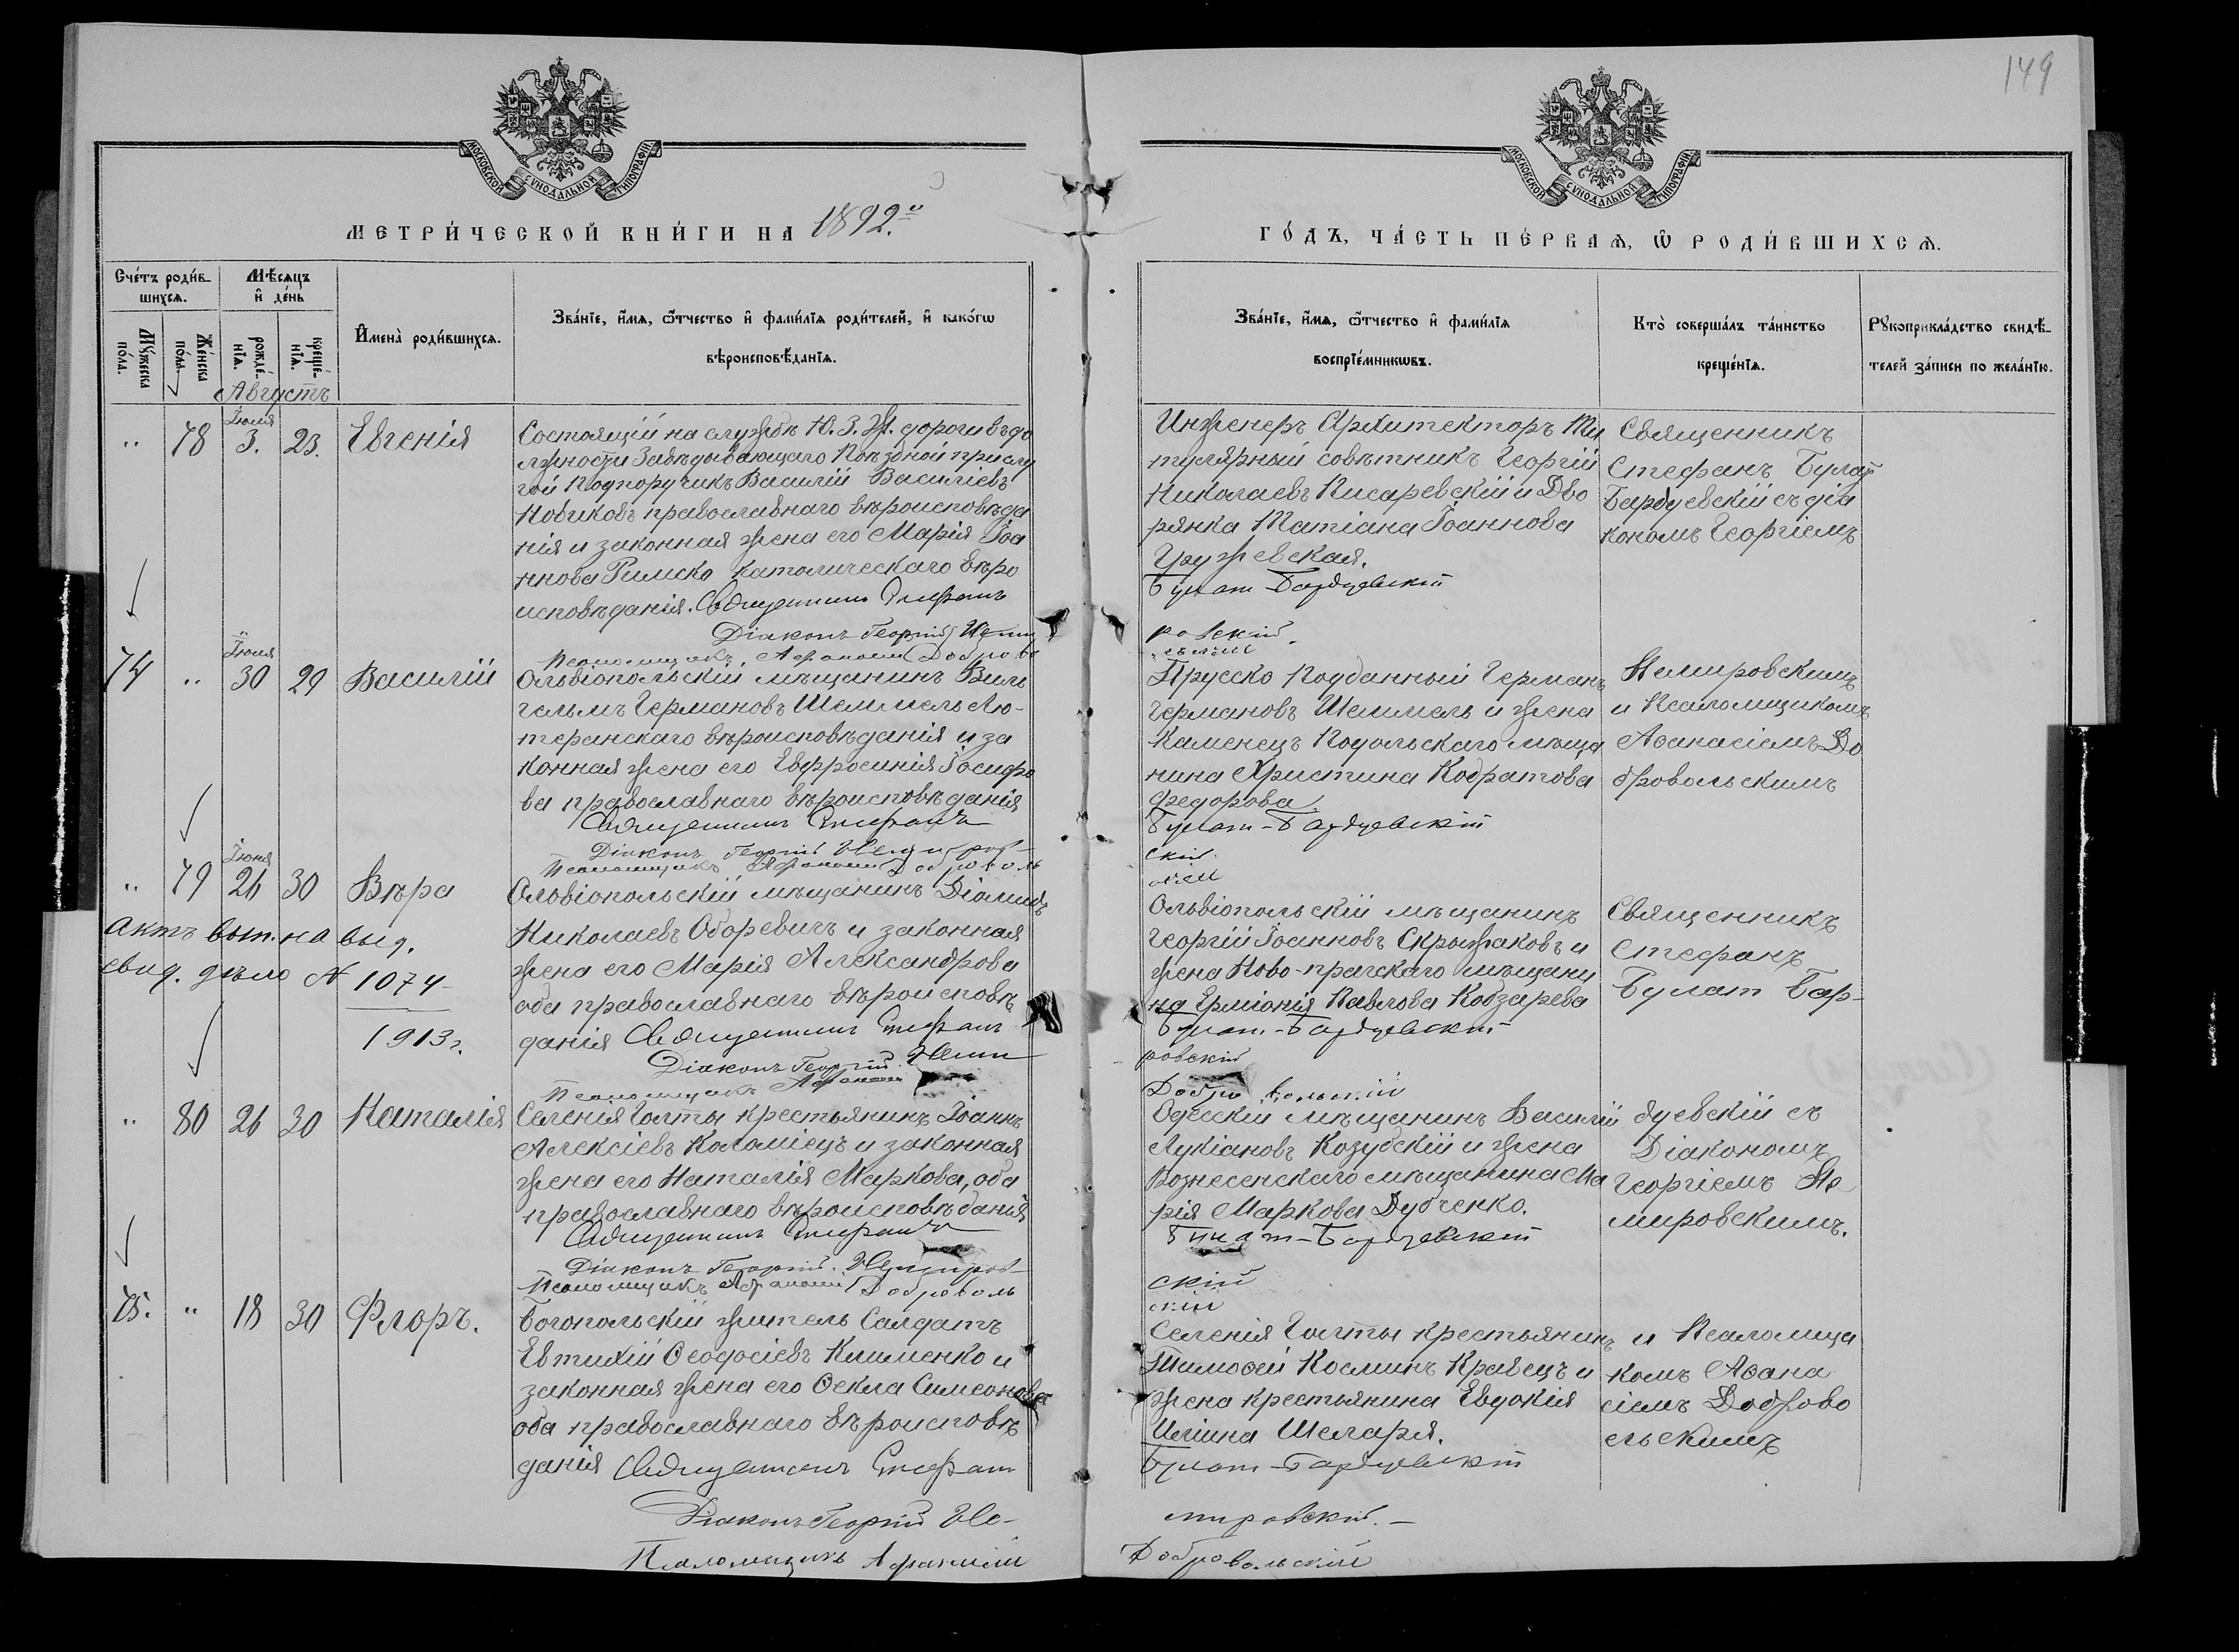 149
МОСКОВСКОЙ СѴНОДАЛЬНОЙ ТИПОГРАФІИ
МОСКОВСКОЙ СѴНОДАЛЬНОЙ ТИПОГРАФІИ
МЕТРИ́ЧЕСКОЙ КНИ́ГИ НА 1892.
ГО́ДЪ, ЧА́СТЬ ПЕ́РВАѦ, Ѡ҆ РОДИ́ВШИХСѦ.
Сче́тъ роди́в-
шихсѧ.
Мꙋ́жеска
по́ла.
Же́нска
по́ла.
Мѣ́сѧцъ
и҆ де́нь
рожде́-
нїѧ.
креще́-
нїѧ.
И҆мена̀ роди́вшихсѧ.
Зва́нїе, и҆́мѧ, ѻ҆́тчество и҆ фами́лїѧ роди́телей, и҆ како́гѡ
вѣроисповѣ́данїѧ.
Зва́нїе, и҆́мѧ, ѻ҆́тчество и҆ фами́лїѧ
воспрїе́мникѡвъ.
Кто̀ соверша́лъ та́инство
креще́нїѧ.
Рꙋкоприкла́дство свидѣ́-
телей за́писи по жела́нїю.
Августъ
" 78 Іюля 3. 23. Евгенія
Состоящій на службѣ Ю. З. Ж. дороги въ до
лжности Завѣдывающаго Поѣздной прислу
гой Подпоручикъ Василій Василіевъ
Новиковъ православнаго вѣроисповѣда
нія и законная жена его Марія Іоа
ннова Римско католическаго вѣро
исповѣданія. Священникъ Стефанъ
Діаконъ Георгій Неми
Псаломщикъ Афанасій Доброво
Инженеръ Архитекторъ Ти
тулярный совѣтникъ Георгій
Николаевъ Писаревскій и Дво
рянка Татіана Іоаннова
Гружевская.
Булат-Бардуевскій
ровскій.
льскій
Священникъ
Стефанъ Булат
Бардуевскій съ діа
кономъ Георгіемъ
74 " Іюля 30 29 Василій
Ольвіопольскій мѣщанинъ Виль
гельмъ Германовъ Шеммель Лю-
теранскаго вѣроисповѣданія и за
конная жена его Евфросинія Іосифо
ва православнаго вѣроисповѣданія
Священникъ Стефанъ
Діаконъ Георгій Немиров-
Псаломщикъ Афанасій Доброволь
Прусско Подданный Германъ
Германовъ Шеммель и жена
Каменецъ Подольскаго мѣща
нина Христина Кодратова
Федорова.
Булат-Бардуевскій
скій.
скій
Немировскимъ
и Псаломщикомъ
Аѳанасіемъ До
бровольскимъ
" 79 Іюня 26 30 Вѣра
Ольвіопольскій мѣщанинъ Діомидъ
Николаевъ Оборевичъ и законная
жена его Марія Александрова
оба православнаго вѣроисповѣ
данія Священникъ Стефанъ
Діаконъ Георгій Неми
Псаломщикъ Афанасій
актъ вып. на выд.
свид. дѣло № 1074
1913 г.
Ольвіопольскій мѣщанинъ
Георгій Іоанновъ Скрыжаковъ и
жена Ново-прагскаго мѣщани
на Ерміонія Павлова Кобзарева
Булат-Бардуевскій
ровскій
Добровольскій
Священникъ
Стефанъ
Булат Бар-
" 80 26 30 Наталія
Селенія Голты крестьянинъ Іоаннъ
Алексіевъ Коломіецъ и законная
жена его Наталія Маркова, оба
православнаго вѣроисповѣданія
Священникъ Стефанъ
Діаконъ Георгій Немиров-
Псаломщикъ Афанасій Доброволь
Одесскій мѣщанинъ Василій
Лукіановъ Козубскій и жена
Вознесенскаго мѣщанина Ма
рія Маркова Дубченко.
Булат-Бардуевскій
скій
скій
дуевскій съ
Діакономъ
Георгіемъ Не
мировскимъ.
75. " 18 30 Флоръ.
Богопольскій житель Салдатъ
Евтихій Ѳеодосіевъ Клименко и
законная жена его Ѳекла Симеонова
оба православнаго вѣроисповѣ
данія Священникъ Стефан
Діаконъ Георгій Не-
Псаломщикъ Афанасій
Селенія Голты крестьянинъ
Тимоѳей Косминъ Кравецъ и
жена крестьянина Евдокія
Иліина Шеларя.
Булат-Бардуевскій
мировскій.
Добровольскій
и Псаломщи
комъ Аѳана
сіемъ Доброво
льскимъ